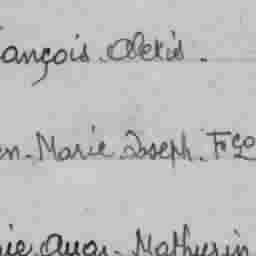 ançois. Alexis.
en. Marie Joseph. Fço
ie. Augs. Mathurin